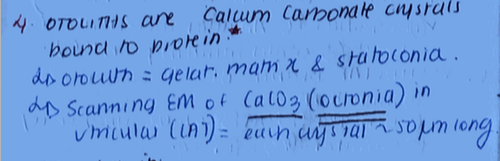 4. otoliths are Calcium Carbonate crystals
bound to protein.*
↳ otolith = gelat. matrix & statoconia.
↳ Scanning EM of CaCO3 (otconia) in
utricular (CAT) = each crystal ~ 50 µm long.